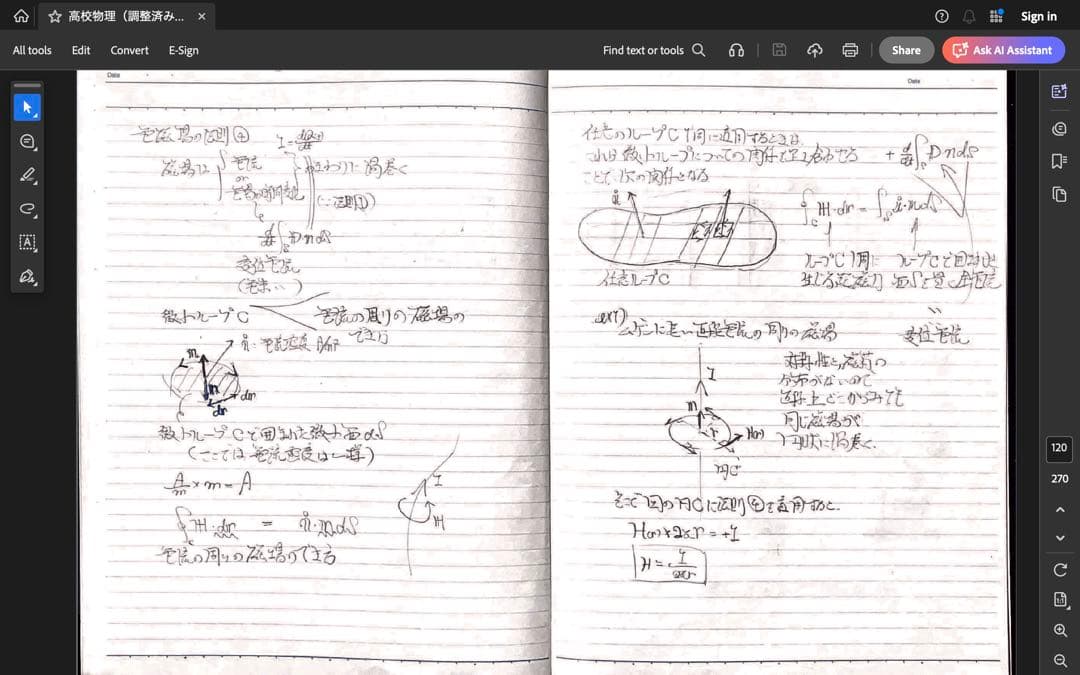 高校物理（調整済み...
Sign in
All tools
Edit
Convert
E-Sign
Find text or tools
Share
Ask AI Assistant
Date
電磁場の法則④
磁場は
電流
or
のまわりに渦巻く
(∵法則①)
d/dt ∫s D・n dS
変位電流
微小ループC
電流の周りの磁場の
でき方
i: 電流密度 A/m²
n
dr
微小ループCで囲まれた微小面dS
(ここでは電流密度は一様)
A/m × m = A
∮H・dr = i・n dS
電流の周りの磁場のでき方
I
H
Date
任意のループCで同じに適用するときは
これは微小ループについての関係を足し合わせる
ことで次の関係となる
+ d/dt ∫s D n dS
∮c H・dr = ∫s i・n dS
i
任意ループC
ループC1周に
生じる起磁力
ループCで囲まれた
面Sを貫く全電流
変位電流
ex1)
ムゲンに長い直線電流の周りの磁場
I
n
r
H(r)
円C
対称性と、磁荷の
分布がないので
直線上どこからみても
同じ磁場が
円状に渦巻く。
そこで図の円Cに法則④を適用すると、
H(r)×2πr = +I
H = I/2πr
120
270